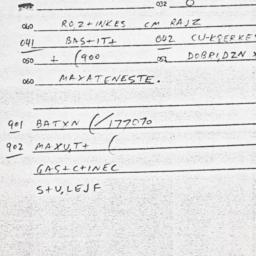 032 O
040 ROZ+INKES CM RAJZ
041 BAS+IT+ 042 CU-KSERKES
050 + (900 052 DOBRIDZN X
060 MAYATENESTE.
901 BATXN (/177070
902 MAXU,T+ (
GAS+C+INEC
S+U,LEJF